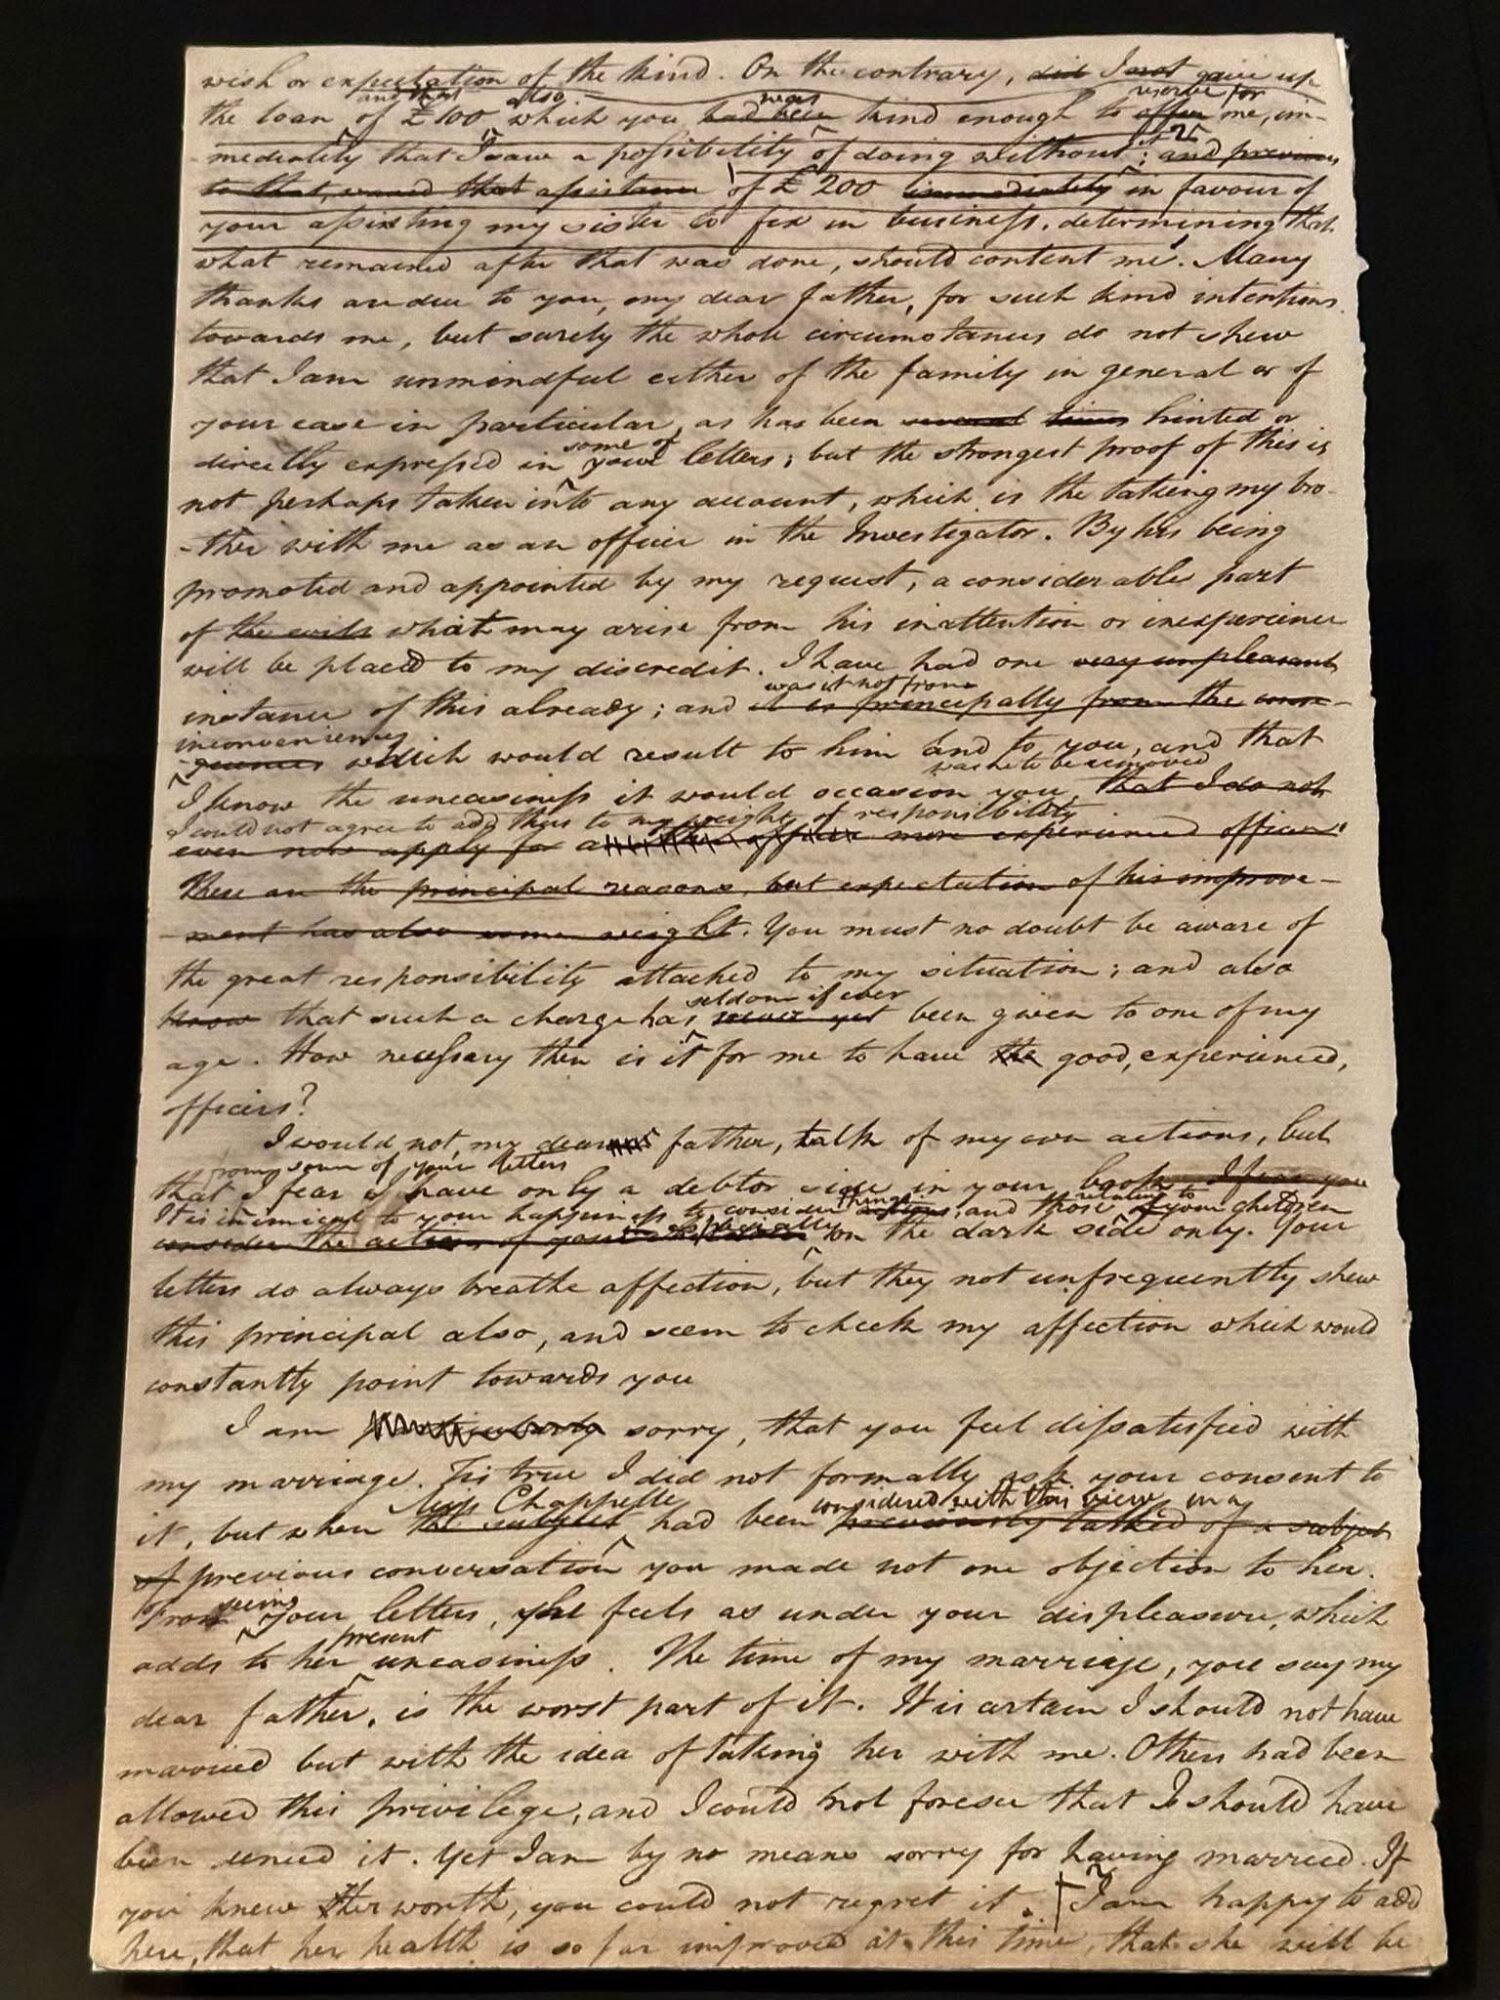 wish or expectation of the kind. On the contrary, did I not give up
and that also was reserve for
the loan of £100 which you had been kind enough to offer me, im-
it
mediately that I saw a possibility of doing without; and previous
to that, waved that assistance of £200 immediately in favour of
your assisting my sister to fix in business, determining that
what remained after that was done, should content me. Many
thanks are due to you, my dear father, for such kind intentions
towards me, but surely the whole circumstances do not shew
that I am unmindful either of the family in general or of
your case in particular, as has been several times hinted or
some of
directly expressed in your letters; but the strongest proof of this is
not perhaps taken into any account, which is the taking my bro-
-ther with me as an officer in the Investigator. By his being
promoted and appointed by my request, a considerable part
of the evils what may arise from his inattention or inexperience
will be placed to my discredit. I have had one very unpleasant
was it not from
instance of this already; and it is principally from the conse-
inconveniency
quences which would result to him and to you, and that
was he to be removed
I know the uneasiness it would occasion you, that I do not
I could not agree to add this to my weight of responsibility
even now apply for a more experienced officer.
These are the principal reasons, but expectation of his improve-
-ment has also some weight. You must no doubt be aware of
the great responsibility attached to my situation; and also
seldom if ever
know that such a charge has never yet been given to one of my
age. How necessary then is it for me to have the good, experienced,
officers?
I would not, my dear father, talk of my own actions, but
from some of your letters
that I fear I have only a debtor side in your book. I fear you
It is inimical to your happiness to consider things actions, and those relating to of your children
consider the actions of your especially on the dark side only. Your
letters do always breathe affection, but they not unfrequently shew
this principal also, and seem to check my affection which would
constantly point towards you
I am particularly sorry, that you feel dissatisfied with
my marriage. Tis true I did not formally ask your consent to
Miss Chappelle considered with this view in a
it, but when the subject had been previously talked of a subject
of previous conversation you made not one objection to her.
seeing
From your letters, she feels as under your displeasure, which
present
adds to her uneasiness. The time of my marriage, you say my
dear father, is the worst part of it. It is certain I should not have
married but with the idea of taking her with me. Others had been
allowed this privilege, and I could not foresee that I should have
been denied it. Yet I am by no means sorry for having married. If
you knew her worth, you could not regret it. I am happy to add
here, that her health is so far improved at this time, that she will be